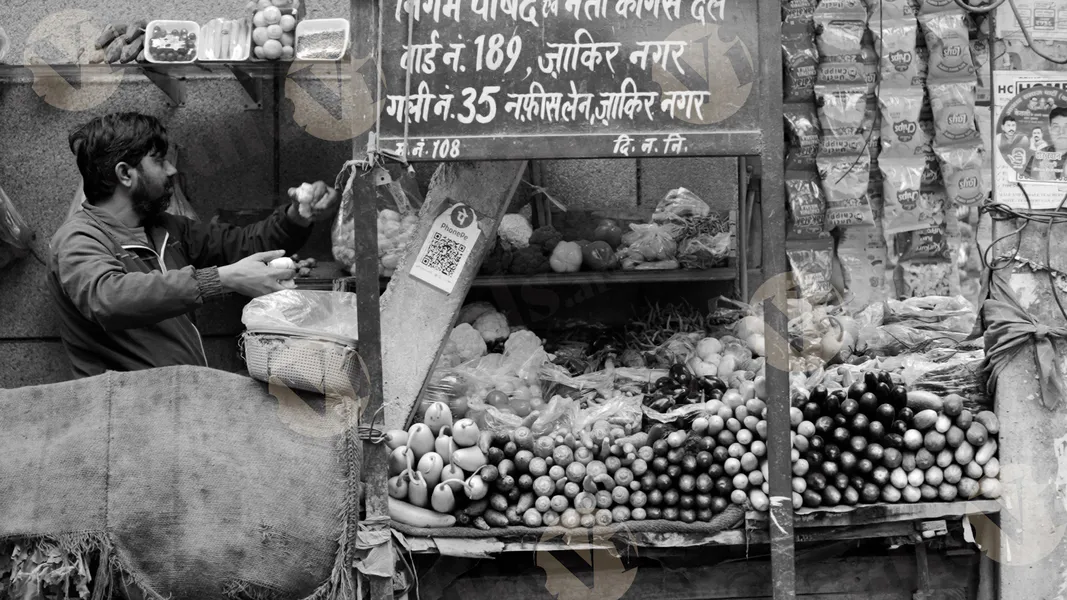 निगम पार्षद एवं नेता कांग्रेस दल
वार्ड नं. 189, ज़ाकिर नगर
गली नं. 35 नफ़ीस लेन, ज़ाकिर नगर
म. नं. 108 दि. न. नि.
PhonePe
Chips
HC